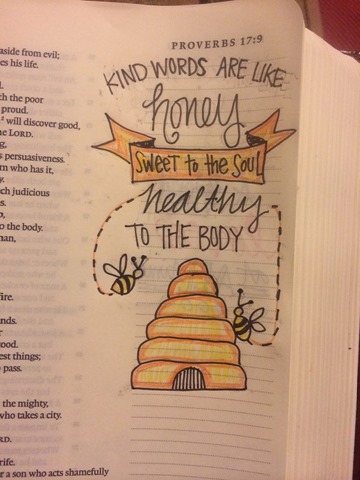 PROVERBS 17:9
KIND WORDS ARE LIKE
honey
SWEET to the SOUL
healthy
TO THE BODY
aside from evil;
es his life.
th the poor
proud.
will discover good,
he LORD.
persuasiveness.
m who has it,
ch judicious
to the body.
man,
fire.
nds.
ood.
est things;
pass.
the mighty,
who takes a city.
RD.
rife.
r a son who acts shamefully